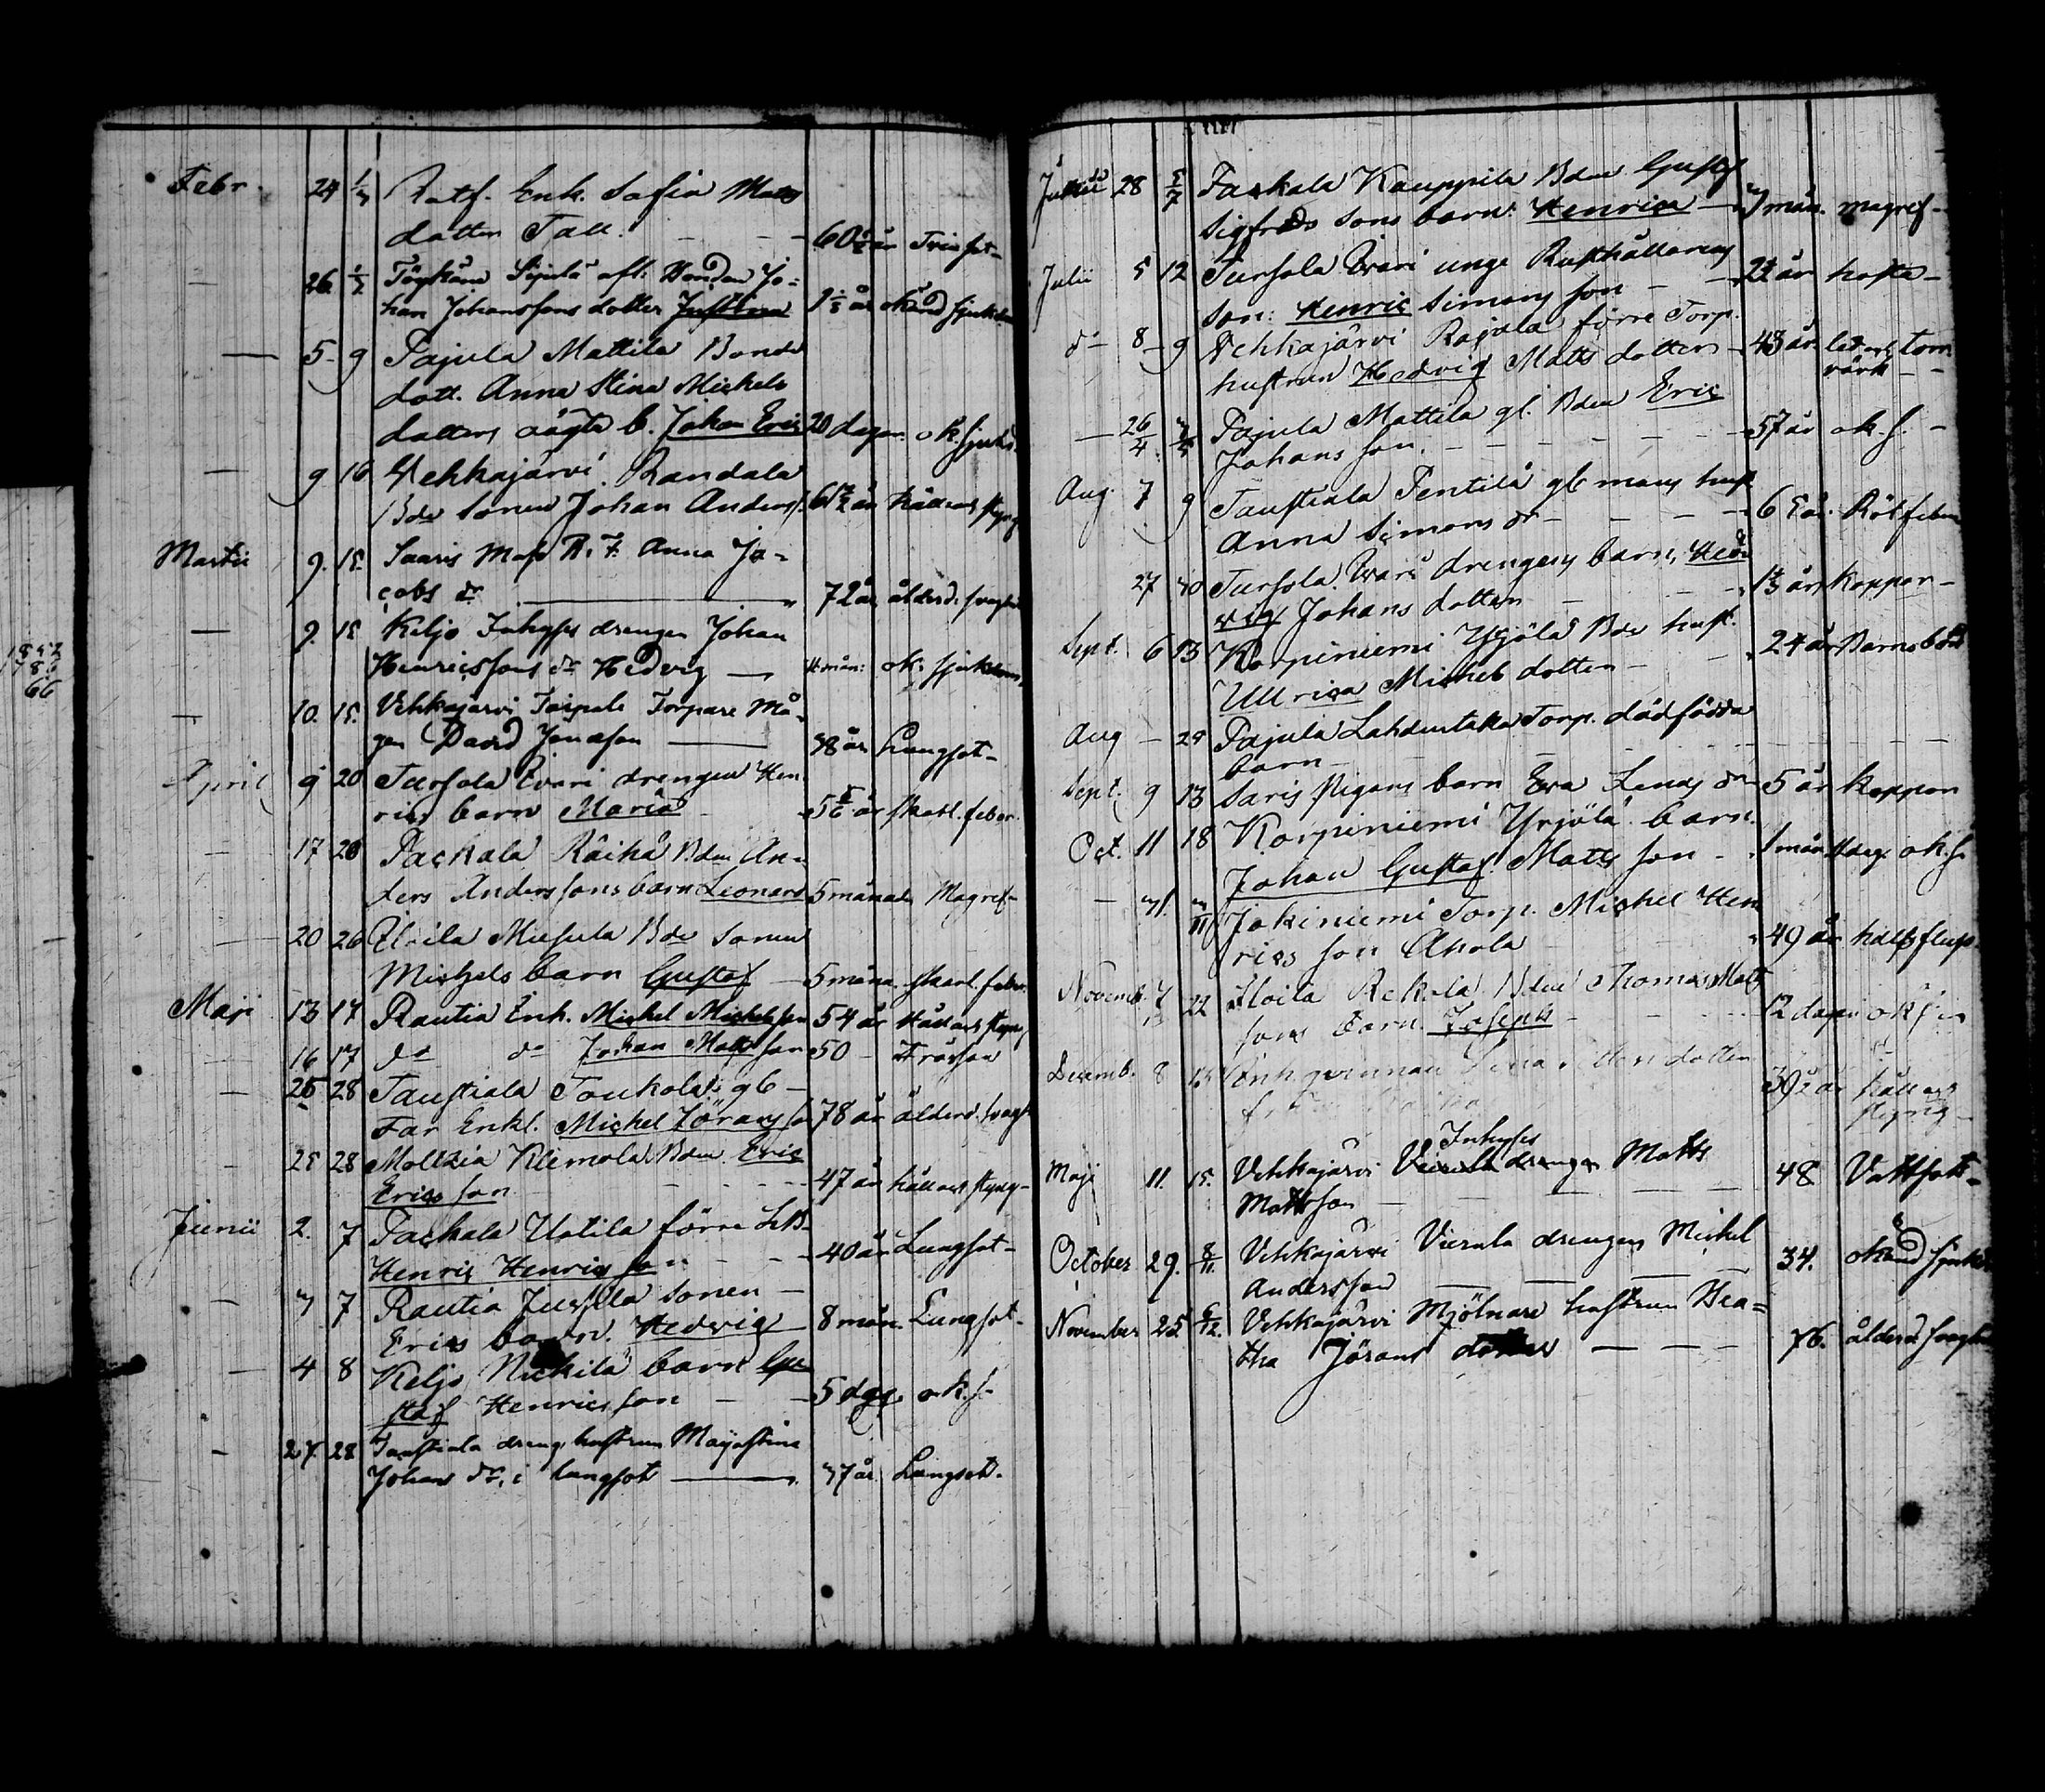 Febr. 24 1/3 Rotf. Enk. Sofia Mats
dotter Tall. 60 1/2 år Tvinsot
26. 1/3 Töykäne Sipilä afl. Bonden Jo=
han Johanssons dotter Justina 1 1/3 år okänd sjukdom
5 9 Pajula Mattila Bonde
dott. Anna Stina Michels
dotters oägta b. Johan Eric 20 dagar ok. sjukd.
9 16 Vehkajärvi Randala
Bde sonen Johan Anders. 61 1/2 år håll och styng
Martii 9. 15. Saaris Maj R. F. Anna Ja=
cobs dr 72 år ålderd. svaghet
9. 15 Keljo Inhyses drengen Johan
Henricssons dr Hedvig 4 mån: ok: sjukdom
10. 15. Vehkajärvi Torpare Må=
gen David Jonasson 38 år Lungsot
April 9 20 Tursola Evari drengen Hen
rics barn Maria 5 5/6 år skarl. feber.
17 20 Packala Räihä Bden An=
ders Anderssons barn Leonard 5 månad. Magref
20 26 Uoila Miehula Bde sonen
Michels barn Gustaf 5 måna. skarl. feber.
Maji 13 17 Rautia Enk. Michel Michelsson 54 år Håll och styng
16 17 do do Johan Matsson 50 Frossan
25 28 Taustiala Toukola gl
Far Enkl. Michel Göransson 78 år ålderd. svagh
25 28 Moltzia Klemola Bden Eric
Ericsson 47 år håll och styng
Junii 2. 7 Packala Uotila förre
Henric Henricsson 40 år Lungsot
3 7 Rautia Jussila sonen
Erics barn. Hedvig 8 mån. Lungsot
4 8 Keljo Nickilä barn Gu
staf Henricsson 5 dgr ok. s.
27. 28 Taustiala dreng hustrun Majastina
Johans dr, i lungsot 37 år Lungsot.
28 5/7 Packala Kauppila Bden Gustaf
Sigfreds sons barn: Henrica 3 mån. magref
Julii 5 12 Tursola Evari unge Rusthållarens
son: Henric Simons son 2 1/2 år hosta
do 8 9 Vehkajärvi Rajala förre Torp.
hustrun Hedvig Matts dotter 43 år led och torr
värk
26 Pajula Mattila gl. Bden Eric
Johansson. 57 år ok. s.
Aug. 7 9 Taustiala Pentilä gl mans hust
Anna Simons dr 65 år. Rötfeber
27 30 Tursola Evari drengens barn, Hed
vig Johans dotter 1 1/3 år koppor
Sept. 6 13 Korpiniemi Yrjölä Bde hust.
Ullrica Michels dotter 24 år Barnsbörd
Aug 25 Pajula Lahdentaka Torp. dödfödda
barn
Sept. 9 13 Saris pigans barn Eva Lenas dr 5 år koppor
Oct. 11 18 Korpiniemi Yrjölä barn.
Johan Gustaf Matts son 1 mån dag. ok. s.
31. 3/11 Jokiniemi Torp. Michel Hen
rics son Ahola 49 år halsfluss.
Novemb. 7 22 Uoila Rekola Bden Thomas Mats
sons barn Joseph 12 dagar ok s
Decemb. 8 Enkqvinnan Lena dotter
39 1/2 år håll och
styng
Maji 11. 15. Vehkajärvi Vierula Inhyses drengen Matts
Mattsson 48 Vattsot
October 29. 8/11. Vehkajärvi Vierula drengen Michel
Andersson 34. okänd sjukd
November 25 6/12. Vehkajärvi Mjölnare hustrun Bea=
tha Jörans dotter 76. ålderd. svaghet
1852
1786
66